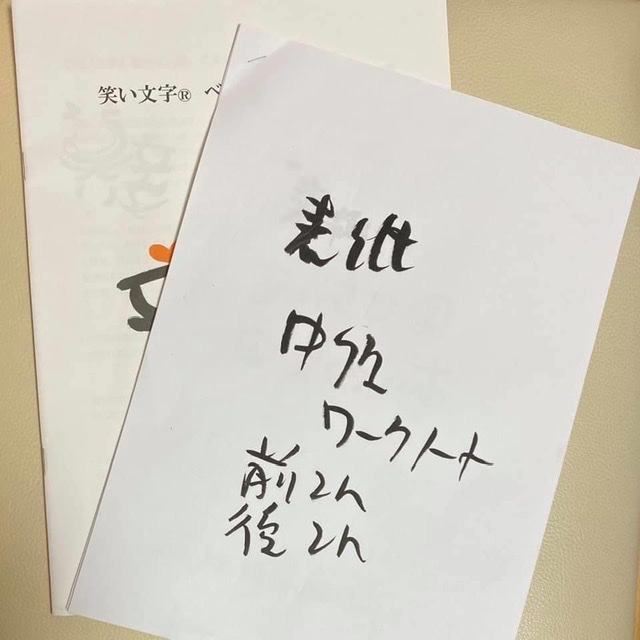 笑い文字® ベ
表紙
中級
ワークノート
前2h
後2h